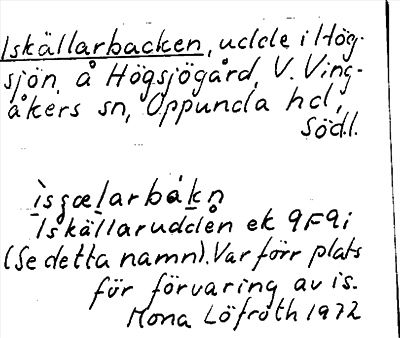 Iskällarbacken, udde i Hög-
sjön, å Högsjögård, V. Ving-
åkers sn, Oppunda hd,
Södl.
ìsʒælarbákn
Iskällarudden ek 9F9i
(Se detta namn). Var förr plats
för förvaring av is.
Mona Löfroth 1972